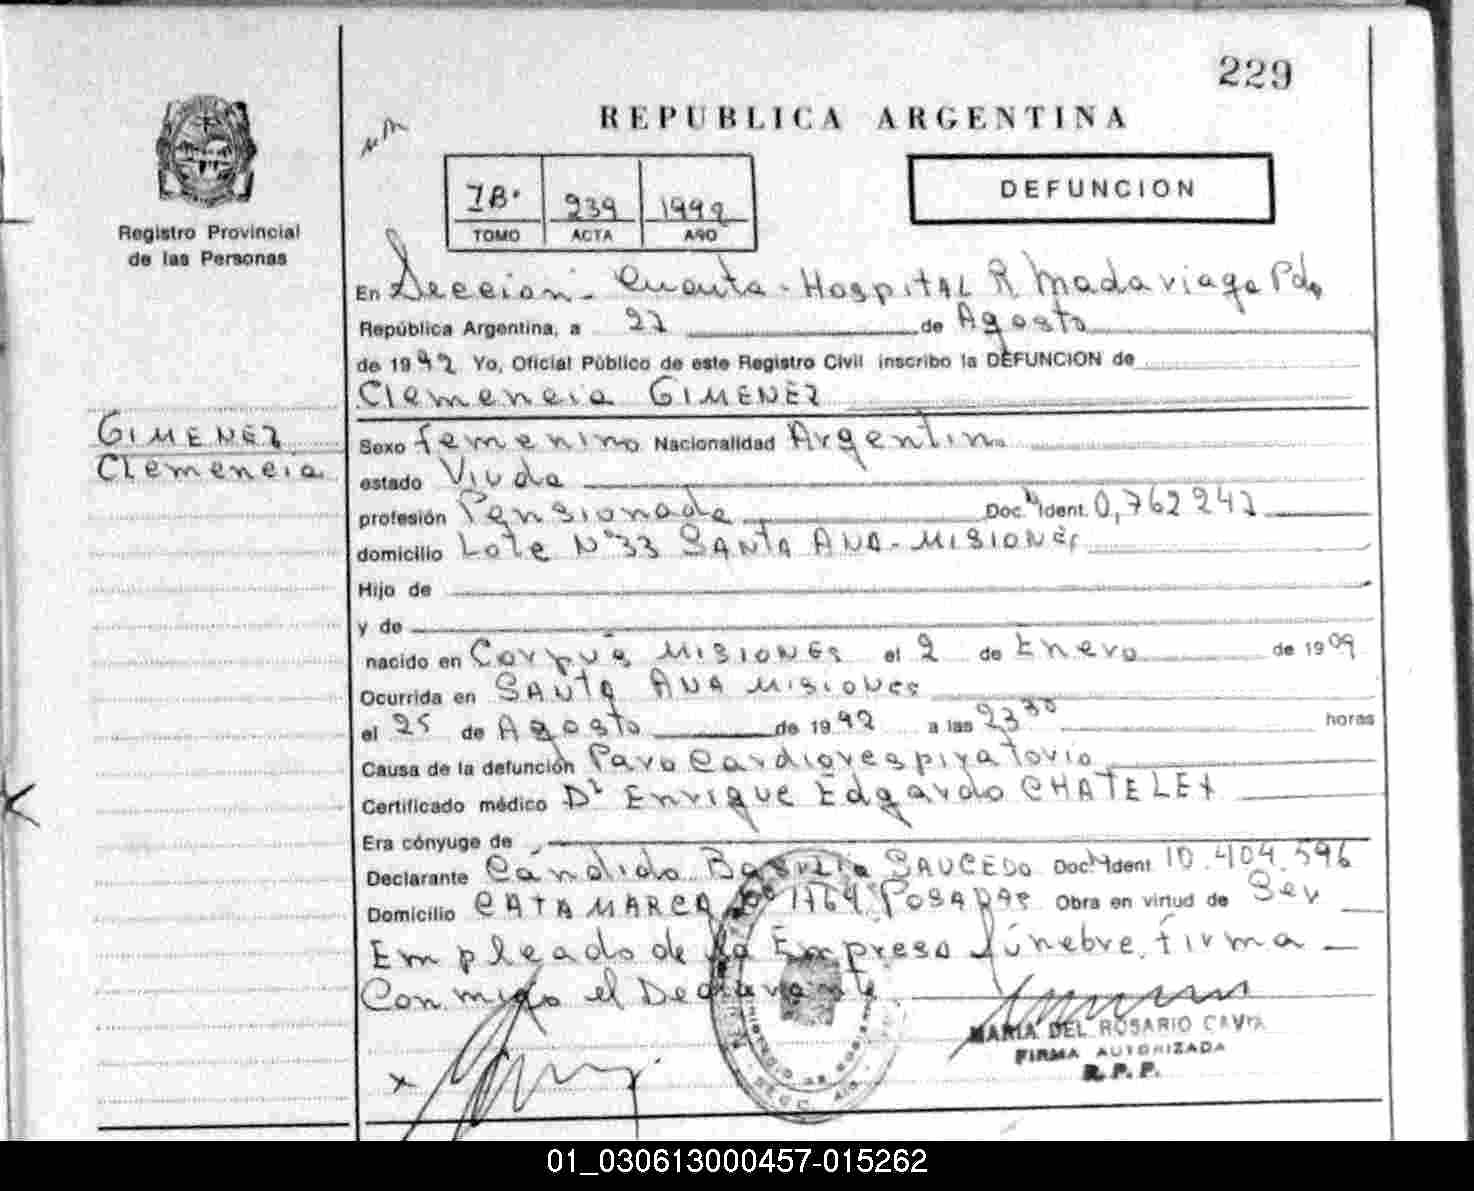 229
REPUBLICA ARGENTINA
DEFUNCION
1B. 239 1992
TOMO ACTA AÑO
Registro Provincial
de las Personas
En Seccion. Cuarta - Hospital R Madariaga Pdas
República Argentina, a 27 de Agosto
de 1992 Yo, Oficial Público de este Registro Civil inscribo la DEFUNCION de
Clemencia GIMENEZ
GIMENEZ
Clemencia
Sexo femenino Nacionalidad Argentina
estado Viuda
profesión Pensionada Doc. Ident. 0,762247
domicilio Lote N°33 SANTA ANA - MISIONES
Hijo de
y de
nacido en Corpus MISIONES el 2 de Enero de 1909
Ocurrida en SANTA ANA MISIONES
el 25 de Agosto de 1992 a las 23 30 horas
Causa de la defunción Paro Cardiorespiratorio
Certificado médico Dr Enrique Edgardo CHATELET
Era cónyuge de
Declarante Cándido SAUCEDO Doc. Ident. 10.404.596
Domicilio CATAMARCA 1764 POSADAS Obra en virtud de Ser
Empleado de la Empresa fúnebre. firma
Conmigo el Declarante
MARIA DEL ROSARIO
FIRMA AUTORIZADA
R. P. P.
01_030613000457-015262